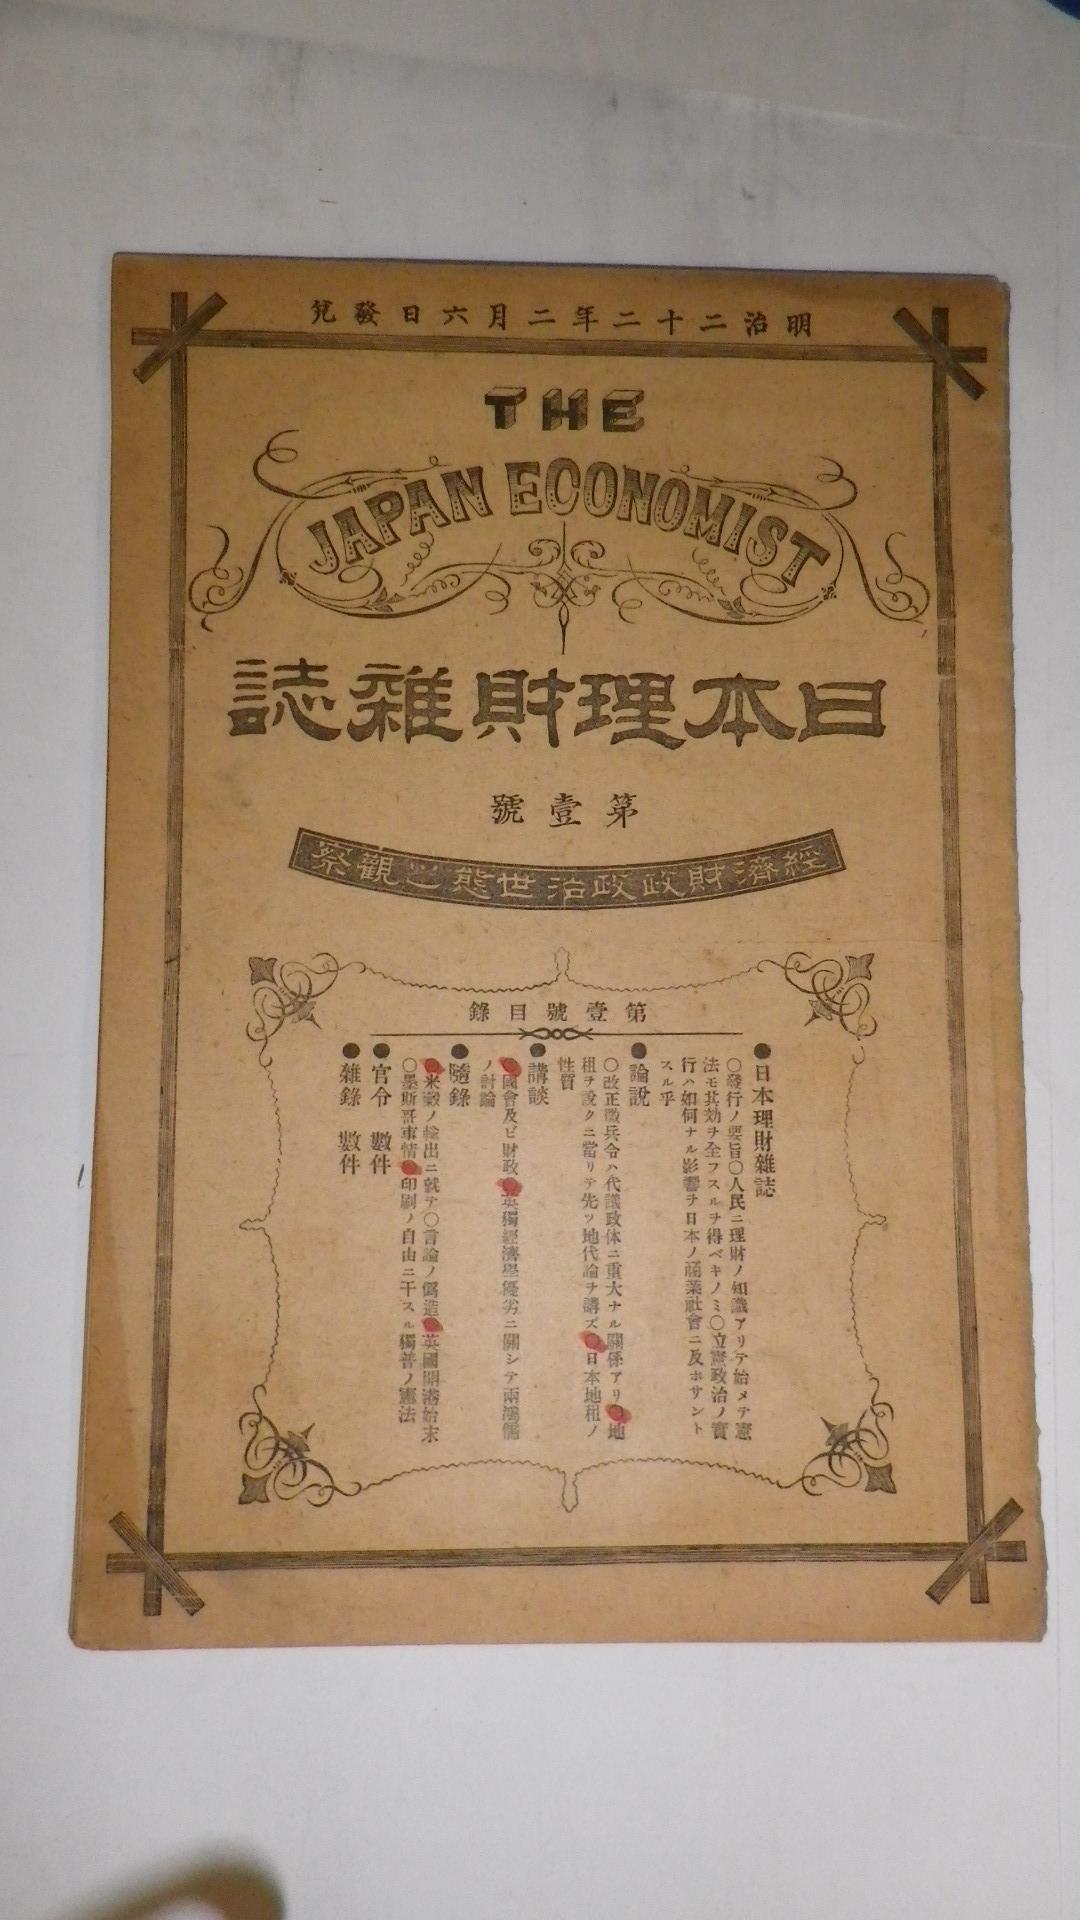 明治二十二年二月六日發兌
THE
JAPAN ECONOMIST
日本理財雜誌
第壹號
經濟財政政治世態之觀察
第壹號目錄
●日本理財雜誌
〇發行ノ要旨〇人民ニ理財ノ知識アリテ始メテ憲
法モ其効ヲ全フスルヲ得ベキノミ〇立憲政治ノ實
行ハ如何ナル影響ヲ日本ノ商業社會ニ及ホサント
スル乎
●論說
〇改正徵兵令ハ代議政体ニ重大ナル關係アリ〇地
租ヲ說クニ當リテ先ツ地代論ヲ講ズ〇日本地租ノ
性質
●講談
〇國會及ビ財政〇英獨經濟學優劣ニ關シテ兩鴻儒
ノ討論
●隨錄
〇米穀ノ輸出ニ就テ〇言論ノ僞造〇英國開港始末
〇墨斯哥事情〇印刷ノ自由ニ干スル獨普ノ憲法
●官令 數件
●雜錄 數件